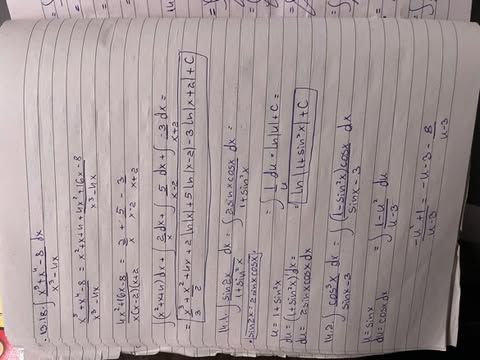 • 13.18. ∫ (x⁵+x⁴-8)/(x³-4x) dx
(x⁵+x⁴-8)/(x³-4x) = x²+x+4 + (4x²+16x-8)/(x³-4x)
(4x²+16x-8)/(x(x-2)(x+2) = 2/x + 5/(x-2) - 3/(x+2)
∫(x²+x+4)dx + ∫ 2/x dx + ∫ 5/(x-2) dx + ∫ -3/(x+2) dx =
= x³/3 + x²/2 + 4x + 2 ln|x| + 5 ln|x-2| - 3 ln|x+2| + C
14.1. ∫ sin2x/(1+sin²x) dx = ∫ 2sinxcosx/(1+sin²x) dx =
• sin2x = 2sinxcosx •
u = 1+sin²x
du = (1+sin²x)'dx =
du = 2sinxcosx dx
= ∫ 1/u du = ln|u| + C =
= ln|1+sin²x| + C
14.2. ∫ cos³x/(sinx-3) dx = ∫ (1-sin²x)cosx/(sinx-3) dx
u = sinx
du = cosx dx
= ∫ (1-u²)/(u-3) du
(-u²+1)/(u-3) = -u-3 - 8/(u-3)